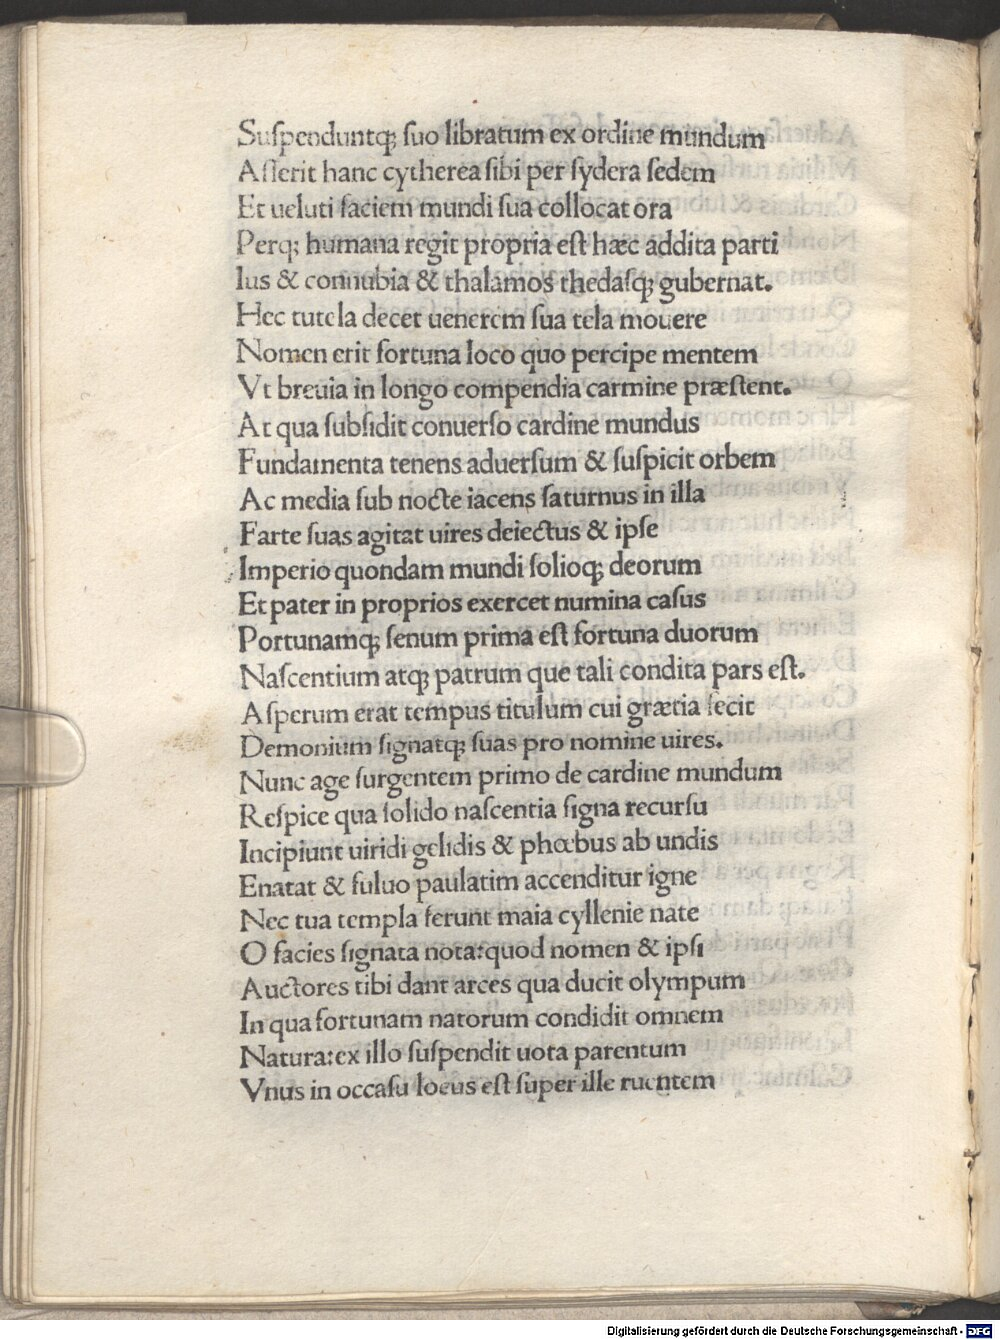 Suſpenduntqꝫ ſuo libratum ex ordine mundum
Aſſerit hanc cytherea ſibi per ſydera ſedem
Et ueluti faciem mundi ſua collocat ora
Perqꝫ humana regit propria eſt hæc addita parti
Ius & connubia & thalamos thedaſqꝫ gubernat.
Hec tutela decet uenerem ſua tela mouere
Nomen erit fortuna loco quo percipe mentem
Vt breuia in longo compendia carmine præſtent.
At qua ſubſidit conuerſo cardine mundus
Fundamenta tenens aduerſum & ſuſpicit orbem
Ac media ſub nocte iacens ſaturnus in illa
Farte ſuas agitat uires deiectus & ipſe
Imperio quondam mundi ſolioqꝫ deorum
Et pater in proprios exercet numina caſus
Portunamqꝫ ſenum prima eſt fortuna duorum
Naſcentium atqꝫ patrum que tali condita pars eſt.
Aſperum erat tempus titulum cui grætia fecit
Demonium ſignatqꝫ ſuas pro nomine uires.
Nunc age ſurgentem primo de cardine mundum
Reſpice qua ſolido naſcentia ſigna recurſu
Incipiunt uiridi gelidis & phœbus ab undis
Enatat & fuluo paulatim accenditur igne
Nec tua templa ferunt maia cyllenie nate
O facies ſignata nota:quod nomen & ipſi
Auctores tibi dant arces qua ducit olympum
In qua fortunam natorum condidit omnem
Natura:ex illo ſuſpendit uota parentum
Vnus in occaſu locus eſt ſuper ille ruentem
Digitalisierung gefördert durch die Deutsche Forschungsgemeinschaft - DFG